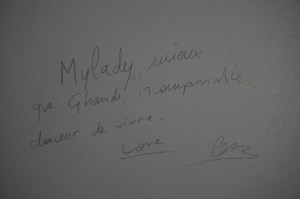 Mylady, mieux
que Ghandi, incomparable
douceur de vivre.
Love